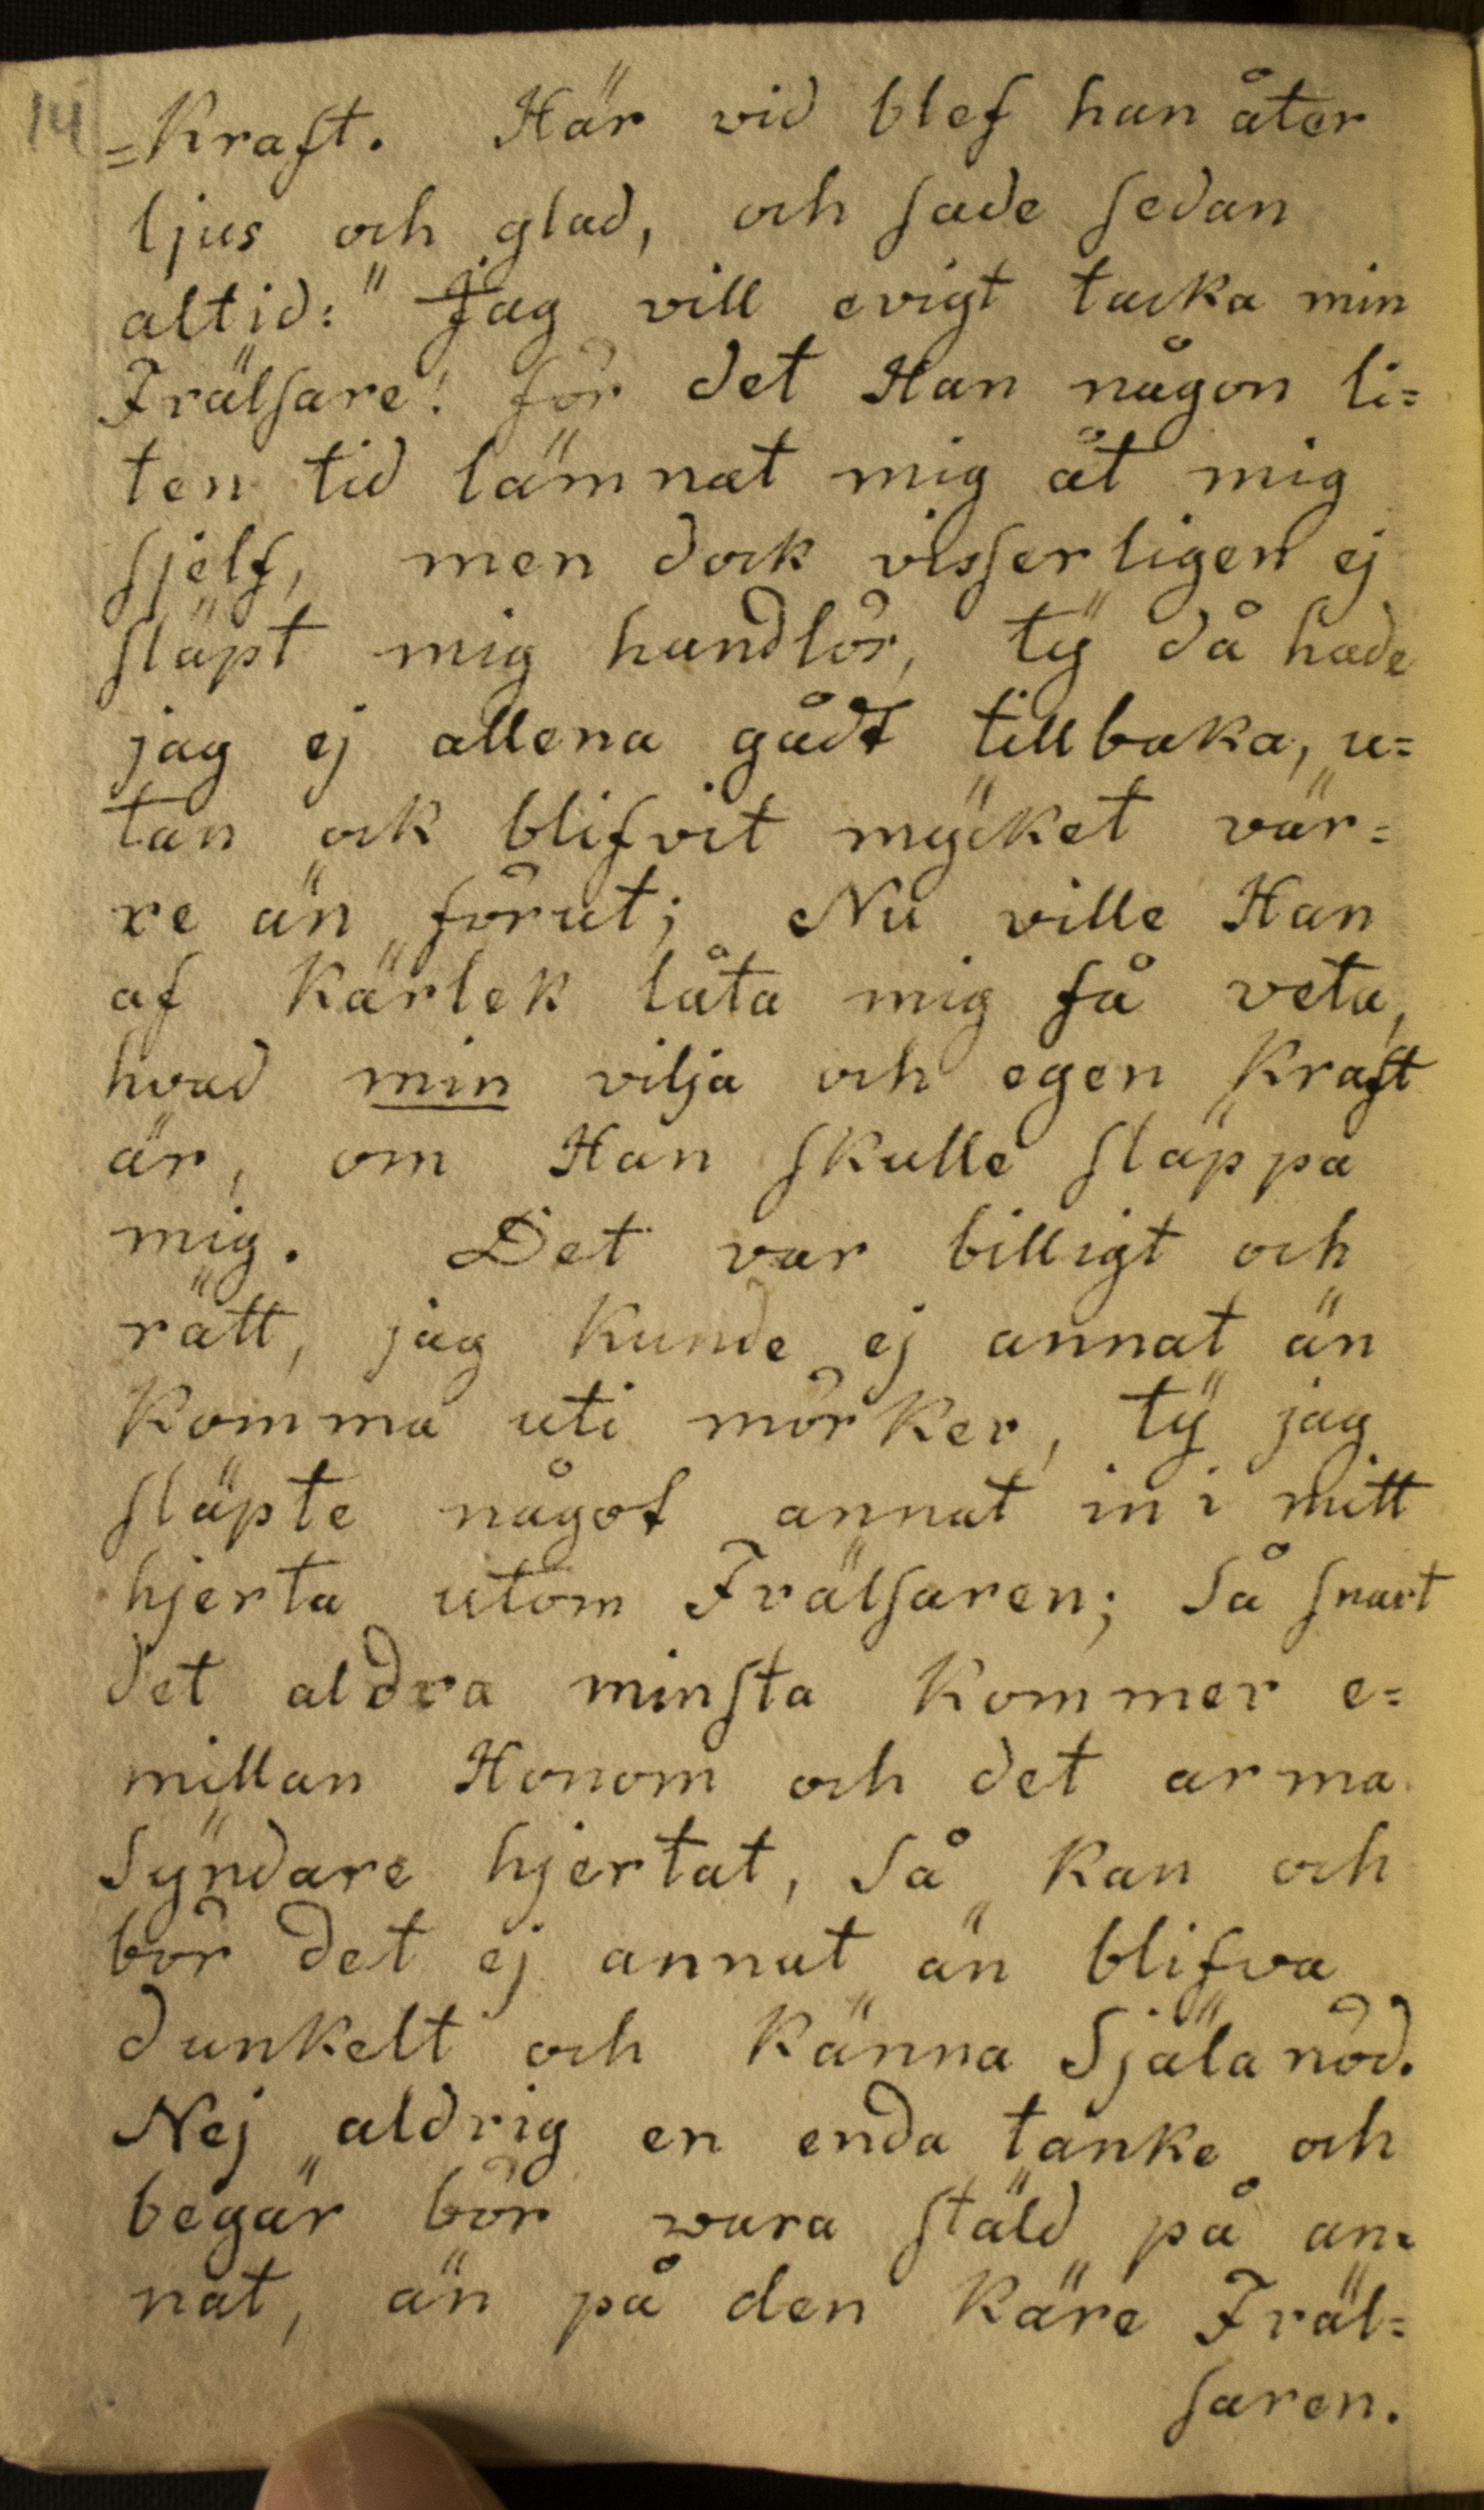 14
=Kraft. Här vid blef han åter
ljus och glad, och sade sedan
altid: "Jag vill evigt tacka min
Frälsare! för det Han någon li=
ten tid lämnat mig åt mig
sjelf, men dock visserligen ej
släpt mig handlös, tÿ då hade
jag ej allena gådt tillbaka, u=
tan ock blifvit mÿcket vär=
re än förut; Nu ville Han
af Kärlek låta mig få veta,
hvad min vilja och egen Kraft
är, om Han skulle släppa
mig. Det var billigt och
rätt, jag Kunde ej annat än
Komma uti mörker, tÿ jag
släpte något annat in i mitt
hjerta utom Frälsaren; Så snart
det aldra minsta Kommer e=
millan Honom och det arma
Sÿndare hjertat, Så Kan och
bör det ej annat än blifva
dunkelt och Känna Själanöd.
Nej aldrig en enda tanke och
begär bör wara stäld på an=
nat, än på den Käre Fräl=
saren.